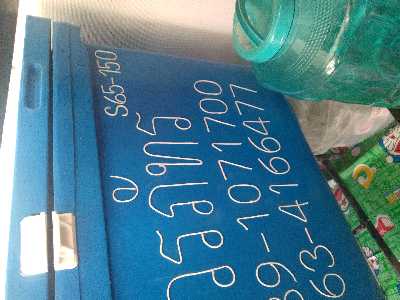 S65-150
วรภัทร
89-1071700
63-4166477